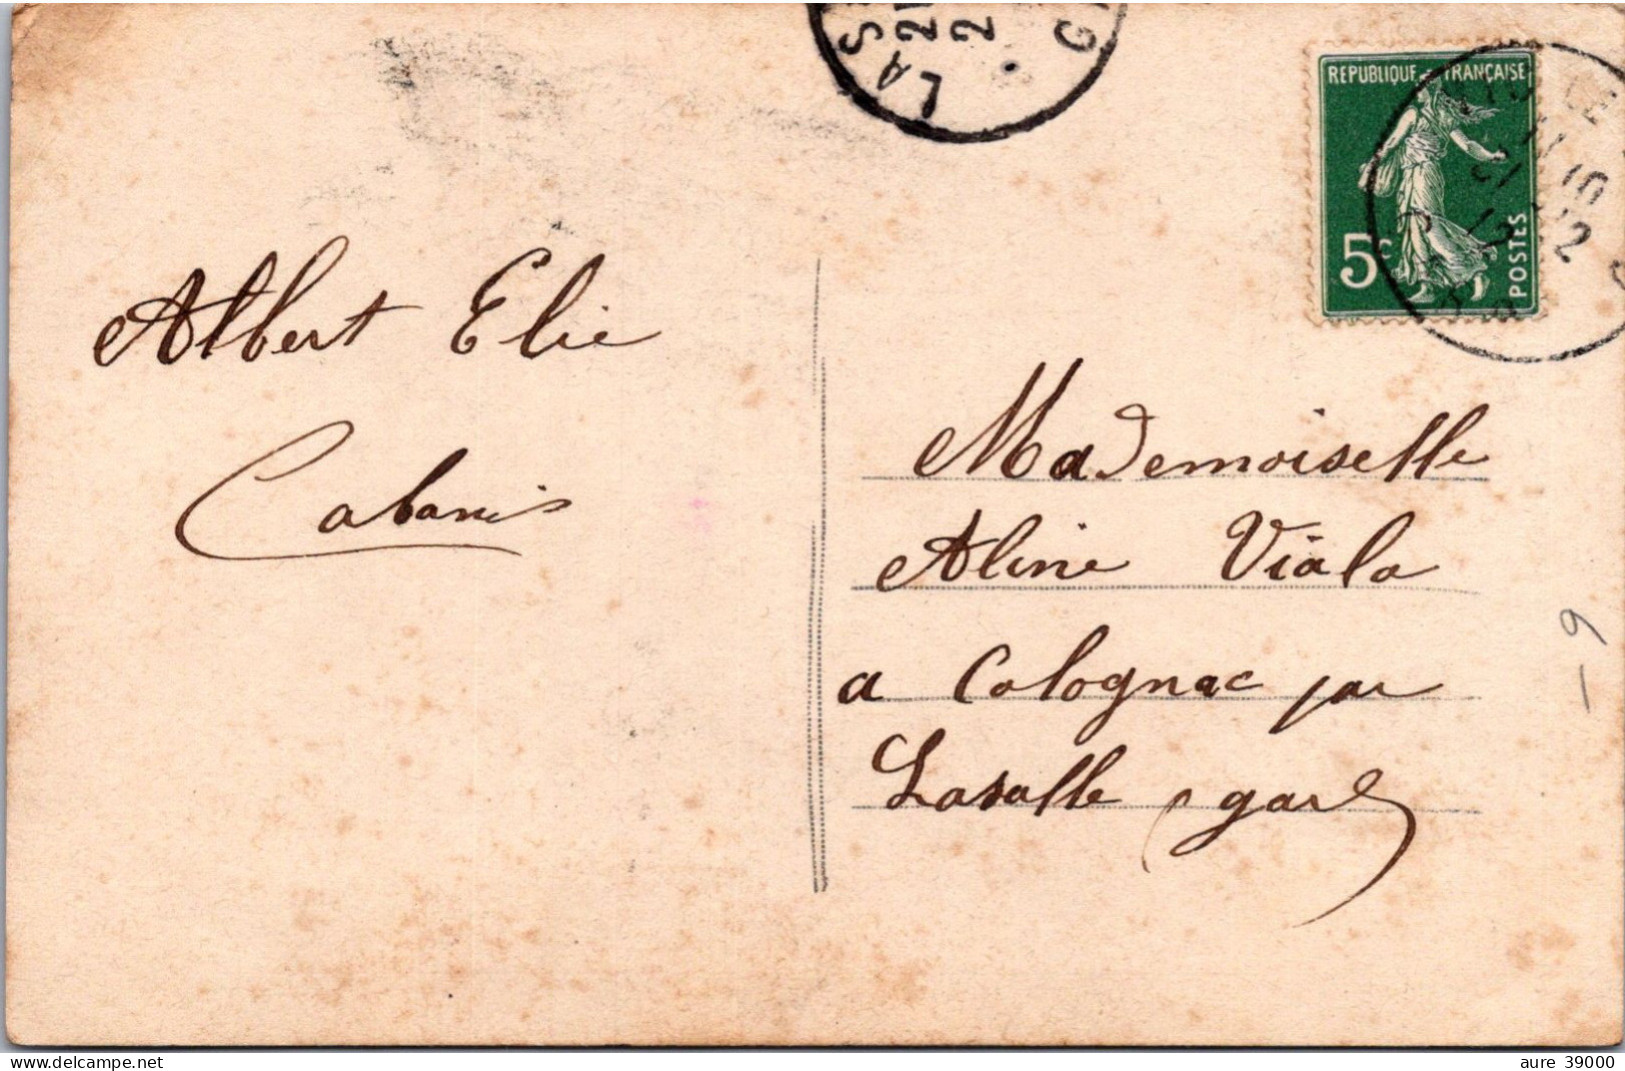 LAS
21
2
G
RÉPUBLIQUE FRANÇAISE
5c
POSTES
LE
21 10
12 12
Albert Elie
Cabanis
Mademoiselle
Aline Viala
a Colognac par
Lasalle gard
- 9
www.delcampe.net
aure 39000